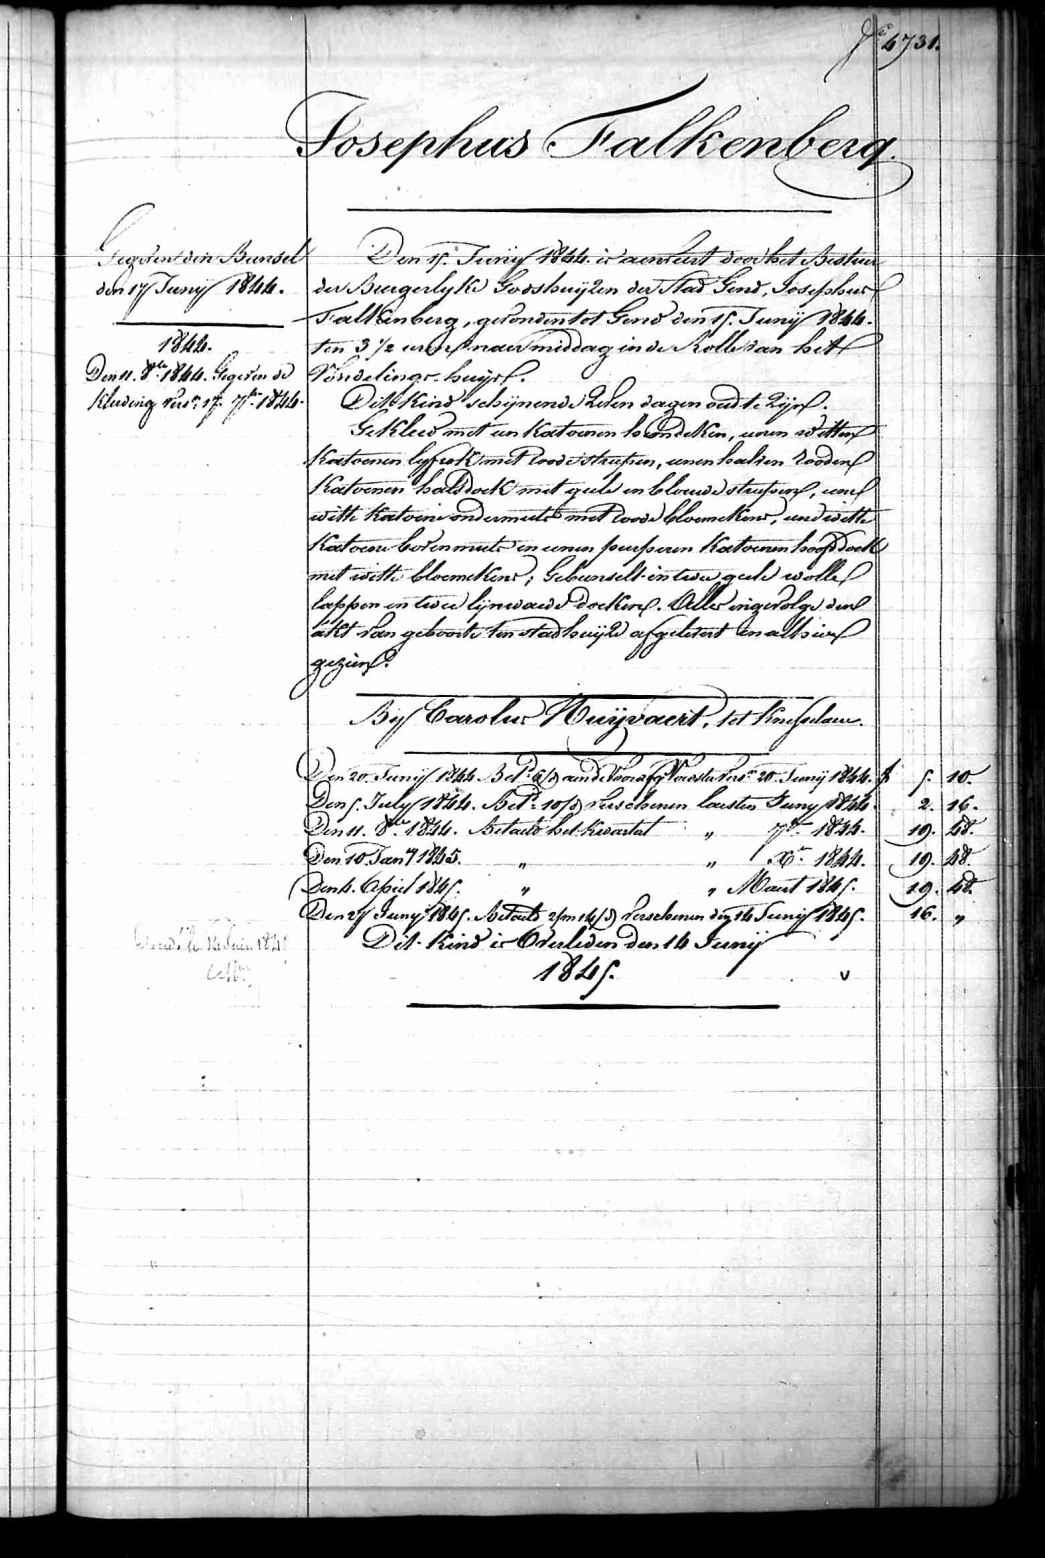 4731.
Josephus Falkenberg.
Gegeven den Bunsel
den 17 Junij 1844.
1844.
Den 11. 8bre 1844. Gegeven de
kleeding 7bre 1844.
Den 15. Junij 1844. is aenveert door het Bestuur
der Burgerlyke Godshuijzen der Stad Gend, Josephus
Falkenberg, gevonden tot Gend den 15. Junij 1844.
ten 3 1/2 uren naer middag in de Rolle van het
Vondelings-huys.
Dit kind schijnende zeven dagen oud te zijn.
Gekleed met een katoenen hemdeken, eenen witten
katoenen lyfrok met roode streepen, eenen halven rooden
katoenen halsdoek met geele en blouwe streepen, eene
witte katoene ondermuts met roode bloemekens, eene witte
katoene bovenmuts en eenen peerperen katoenen hoofddoek
met witte bloemekens; Gebunselt in twee geele wolle
lappen en twee lijnwaede doeken. Alles ingevolge den
akt van geboorte ten stadhuijze afgelevert en alhier
gezien.
By Carolus Huijvaert, tot Knesselaere.
Den 20. Junij 1844. Betd. aen de Voedster 20. Junij 1844. f 5. 10.
Den 5. July 1844. Betd. 10/ verschenen laesten Juny 1844. 2. 16.
Den 11. 8bre 1844. Betaeld het kwartael " 7bre 1844. 19. 48.
Den 10. Jany 1845. " " Xbre 1844. 19. 48.
Den 4. April 1845. " " Maert 1845. 19. 48.
Den 27 Junij 1845. Betaeld 2/m 14/d verschenen den 14 Junij 1845. 16. "
Dit kind is Overleden den 14 Junij
1845. v
le 14 Juin 1845